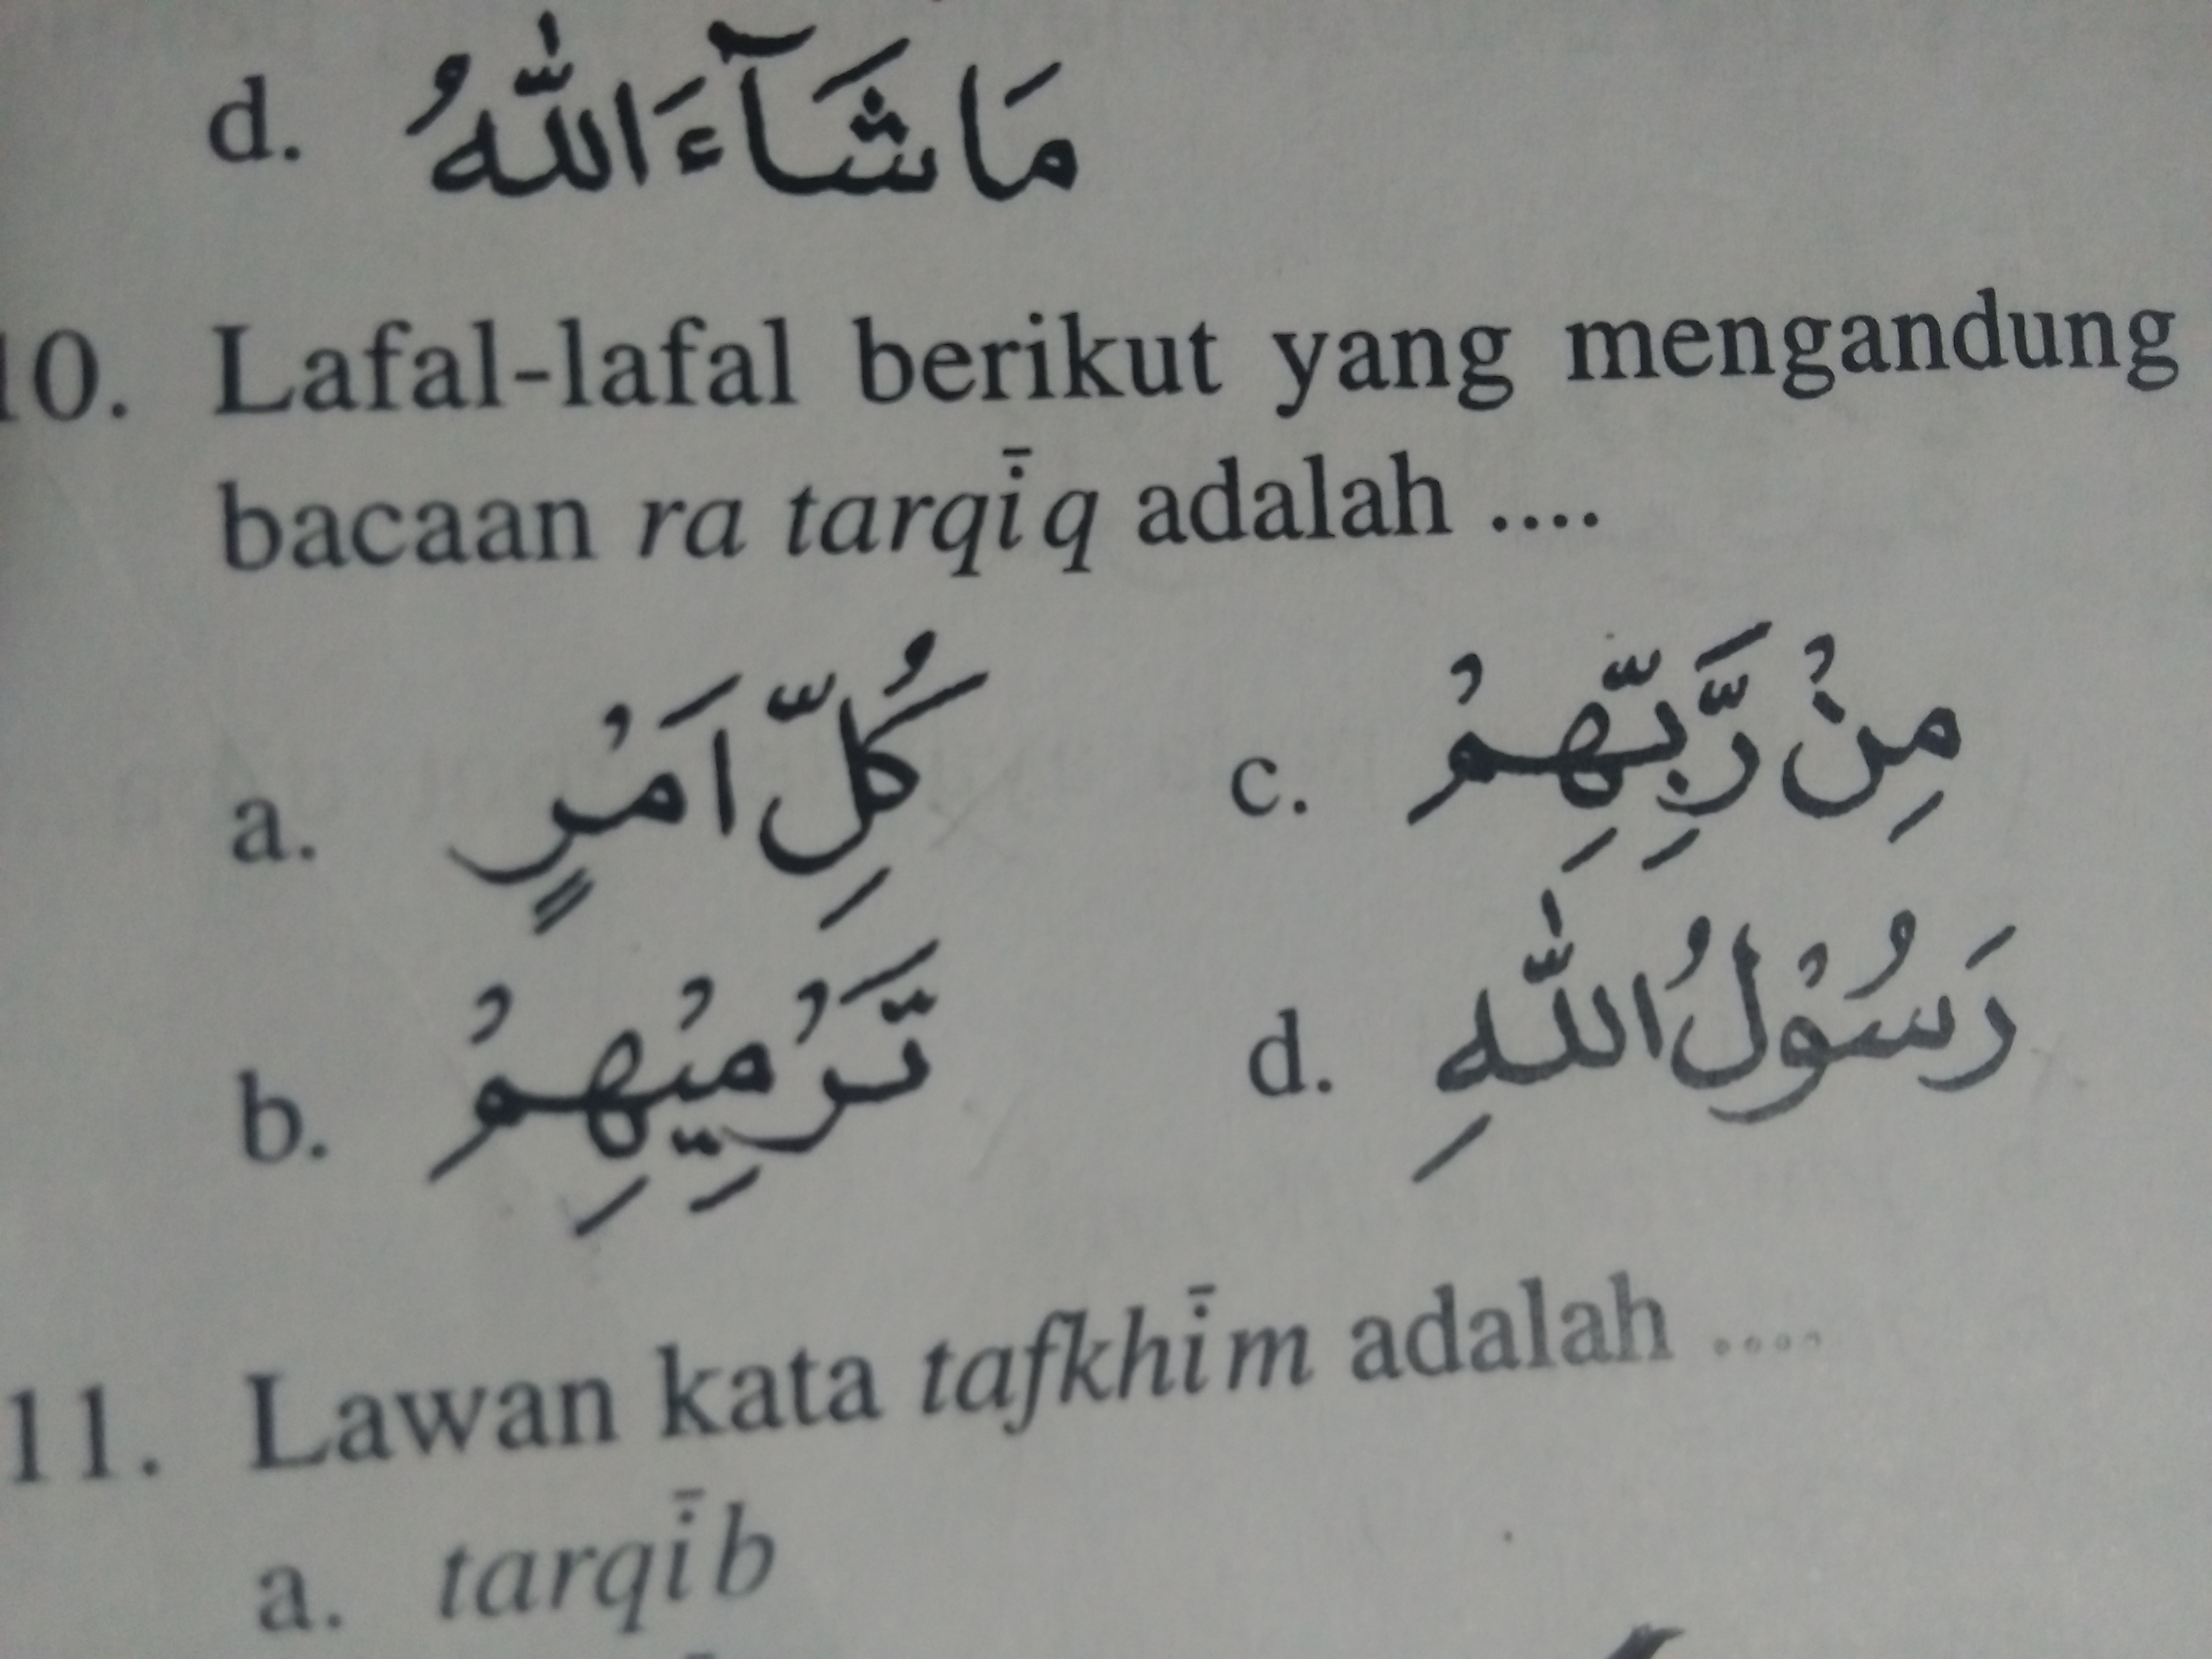 d. مَا شَآءَ اللّٰهُ
10. Lafal-lafal berikut yang mengandung
bacaan ra tarqīq adalah ....
a. كُلِّ اَمْرٍ
b. تَّرْمِيْهِمْ
c. مِنْ رَّبِّهِمْ
d. رَسُوْلُ اللّٰهِ
11. Lawan kata tafkhīm adalah ....
a. tarqīb